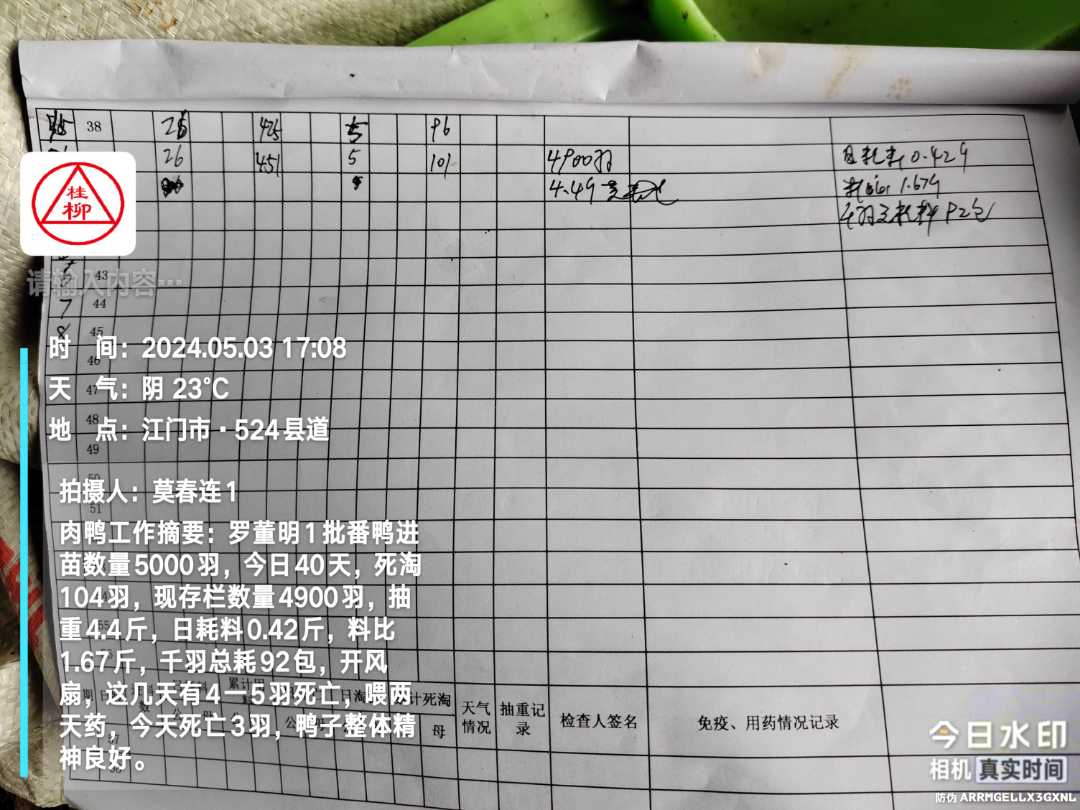 38 26 425 5 96
26 451 5 101 4900羽 日耗料 0.429
4.49 1.679
桂柳
请输入内容…
43
7 44
8 45
46
47
48
49
51
时 间：2024.05.03 17:08
天 气：阴 23℃
地 点：江门市·524县道
拍摄人：莫春连1
肉鸭工作摘要：罗董明1批番鸭进
苗数量5000羽，今日40天，死淘
104羽，现存栏数量4900羽，抽
重4.4斤，日耗料0.42斤，料比
1.67斤，千羽总耗92包，开风
扇，这几天有4一5羽死亡，喂两
天药，今天死亡3羽，鸭子整体精
神良好。
天气情况 抽重记录 检查人签名 免疫、用药情况记录
母
今日水印
相机 真实时间
防伪 ARRMGELLX3GXNL